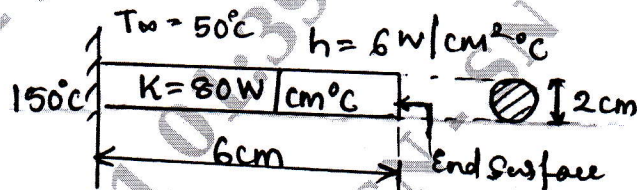 T∞ = 50°C
h = 6 W/cm²°C
150°C
K = 80W/cm°C
2cm
6cm
End Surface